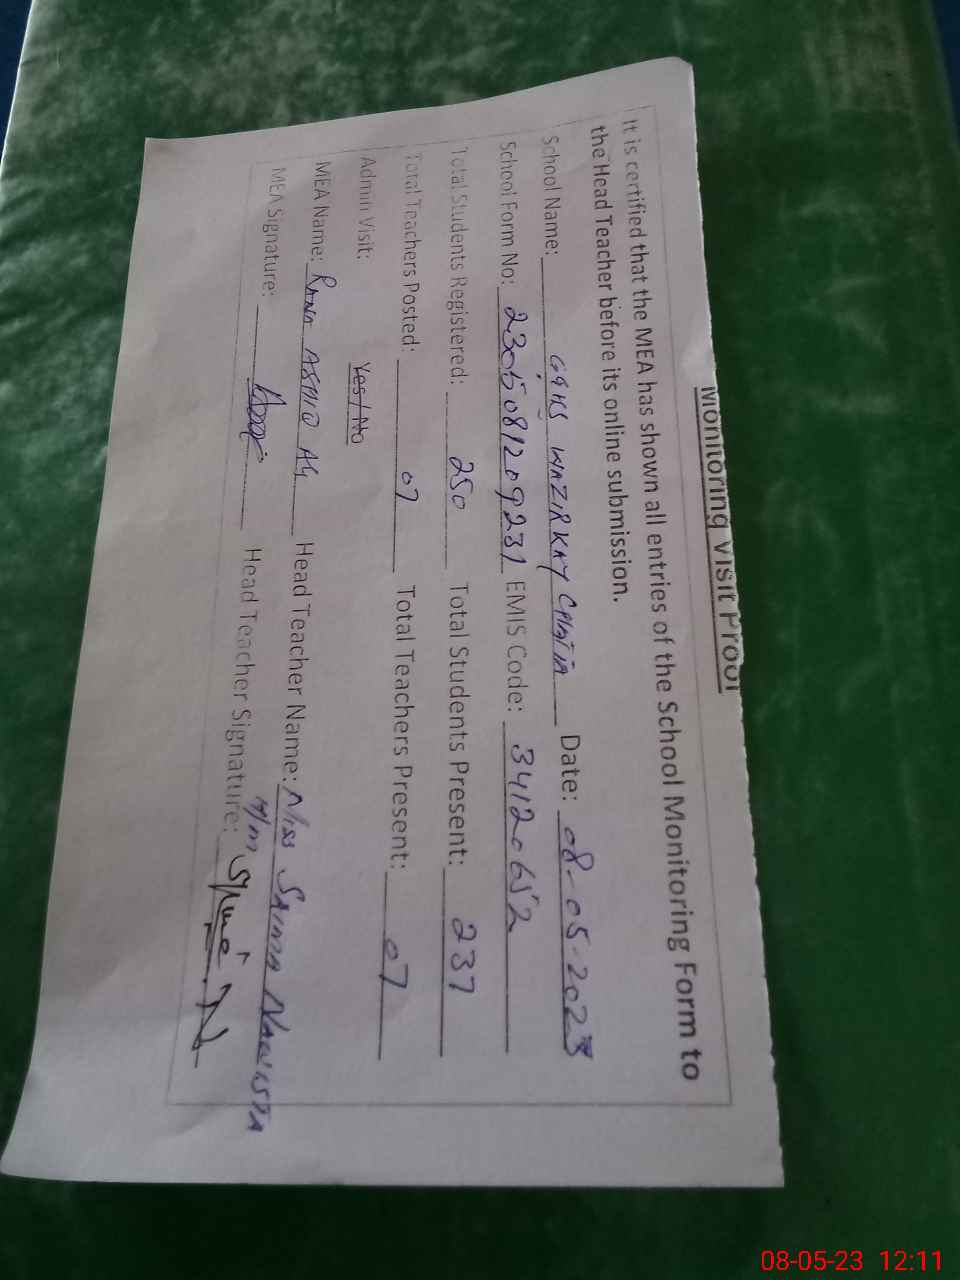 Monitoring Visit Proof
It is certified that the MEA has shown all entries of the School Monitoring Form to
the Head Teacher before its online submission.
School Name: WAZIR KAY Date: 08-05-2023
School Form No: 2305081209231 EMIS Code: 34120652
Total Students Registered: 250 Total Students Present: 237
Total Teachers Posted: 07 Total Teachers Present: 07
Admin Visit: Yes / No
MEA Name: RANA Head Teacher Name: Miss SAIMA
MEA Signature: Head Teacher Signature:
08-05-23 12:11